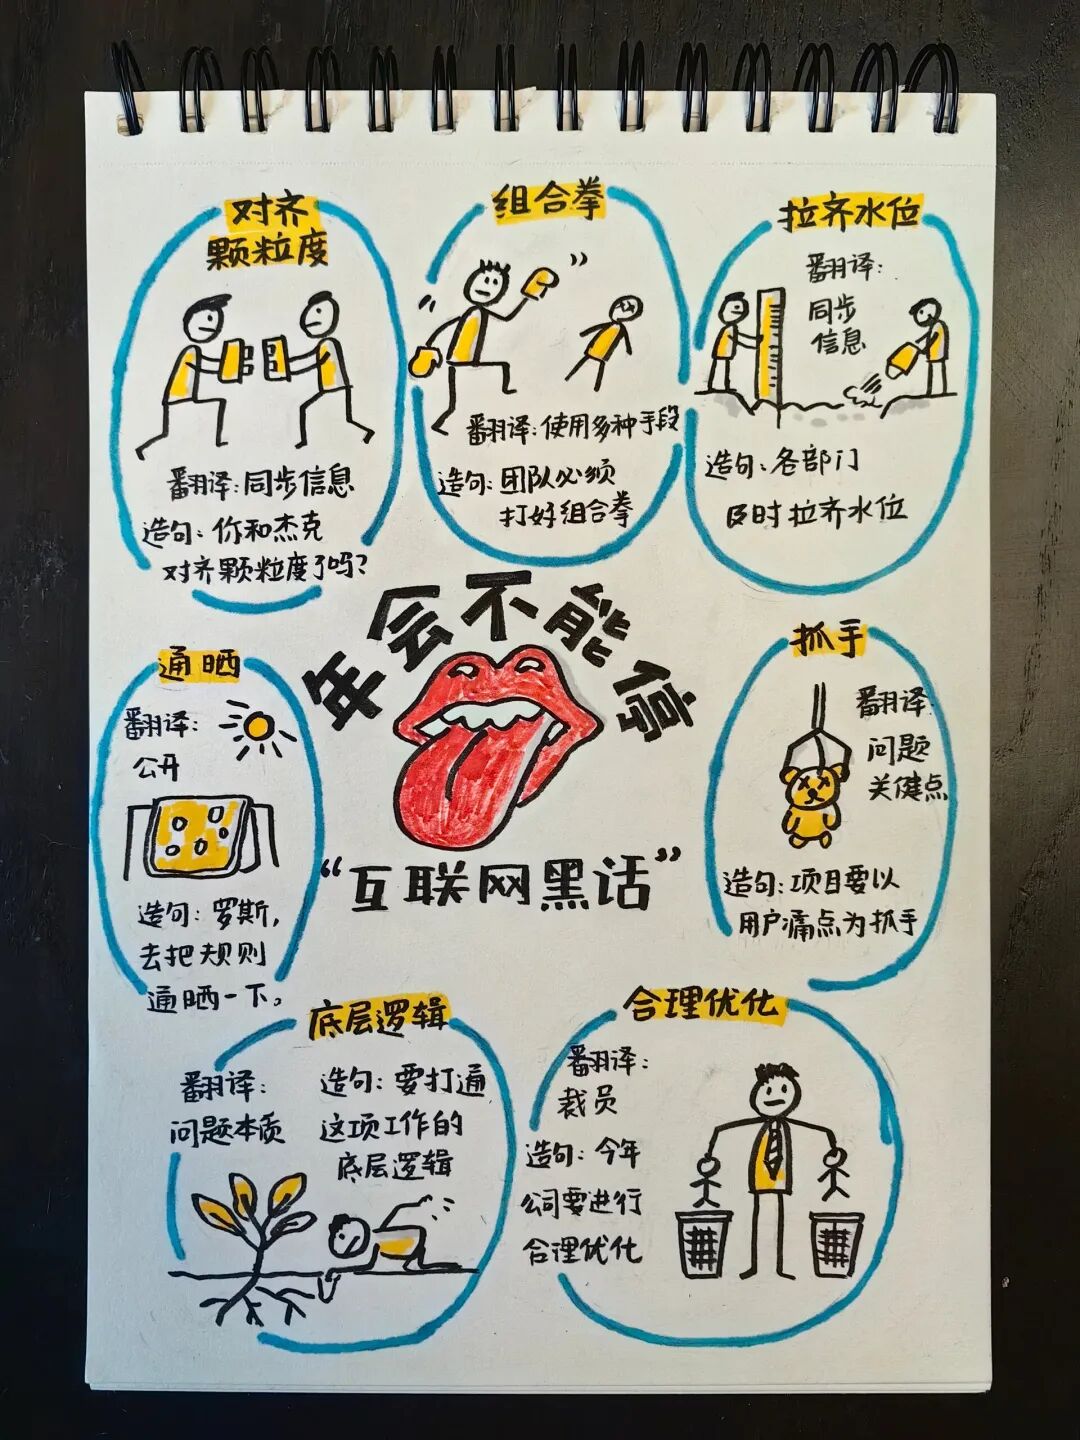 对齐
颗粒度
翻译:同步信息
造句:你和杰克
对齐颗粒度了吗?
组合拳
翻译:使用多种手段
造句:团队必须
打好组合拳
拉齐水位
翻译:
同步
信息
造句:各部门
及时拉齐水位
年会不能停
“互联网黑话”
通晒
翻译:
公开
造句:罗斯,
去把规则
通晒一下。
抓手
翻译:
问题
关键点
造句:项目要以
用户痛点为抓手
底层逻辑
翻译:
问题本质
造句:要打通
这项工作的
底层逻辑
合理优化
翻译:
裁员
造句:今年
公司要进行
合理优化